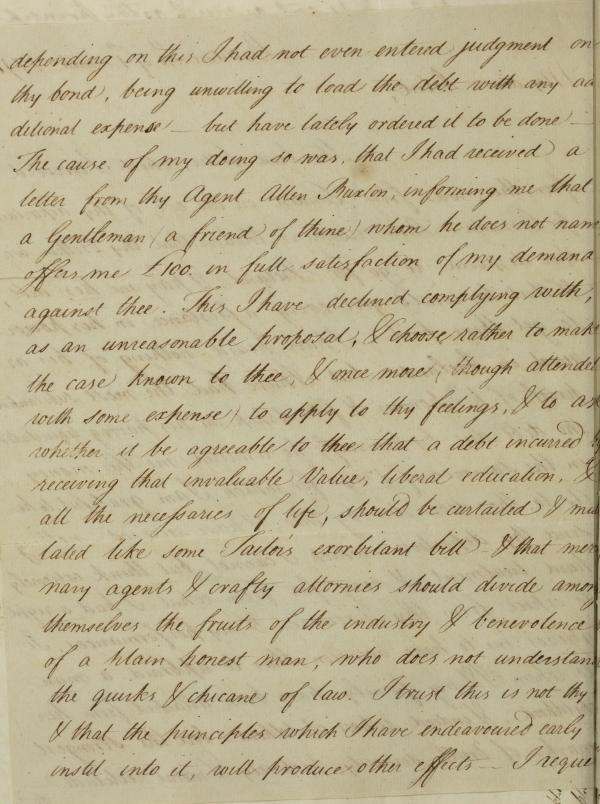 depending on this I had not even entered judgment on
thy bond, being unwilling to load the debt with any ad
ditional expense — but have lately ordered it to be done —
The cause of my doing so was, that I had received a
letter from thy Agent Allen informing me that
a Gentleman (a friend of thine) whom he does not name
offers me £100. in full satisfaction of my demand
against thee. This I have declined complying with,
as an unreasonable proposal, & choose rather to make
the case known to thee, & once more (though attended
with some expense) to apply to thy feelings, & to ask
whether it be agreeable to thee that a debt incurred
receiving that invaluable Value, liberal education, &
all the necessaries of life, should be curtailed & muti
lated like some Tailor's exorbitant bill — & that merce
nary agents & crafty attornies should divide among
themselves the fruits of the industry & benevolence
of a plain honest man, who does not understand
the quirks & chicane of law. I trust this is not thy
& that the principles which I have endeavoured early
instil into it, will produce other effects — I reque